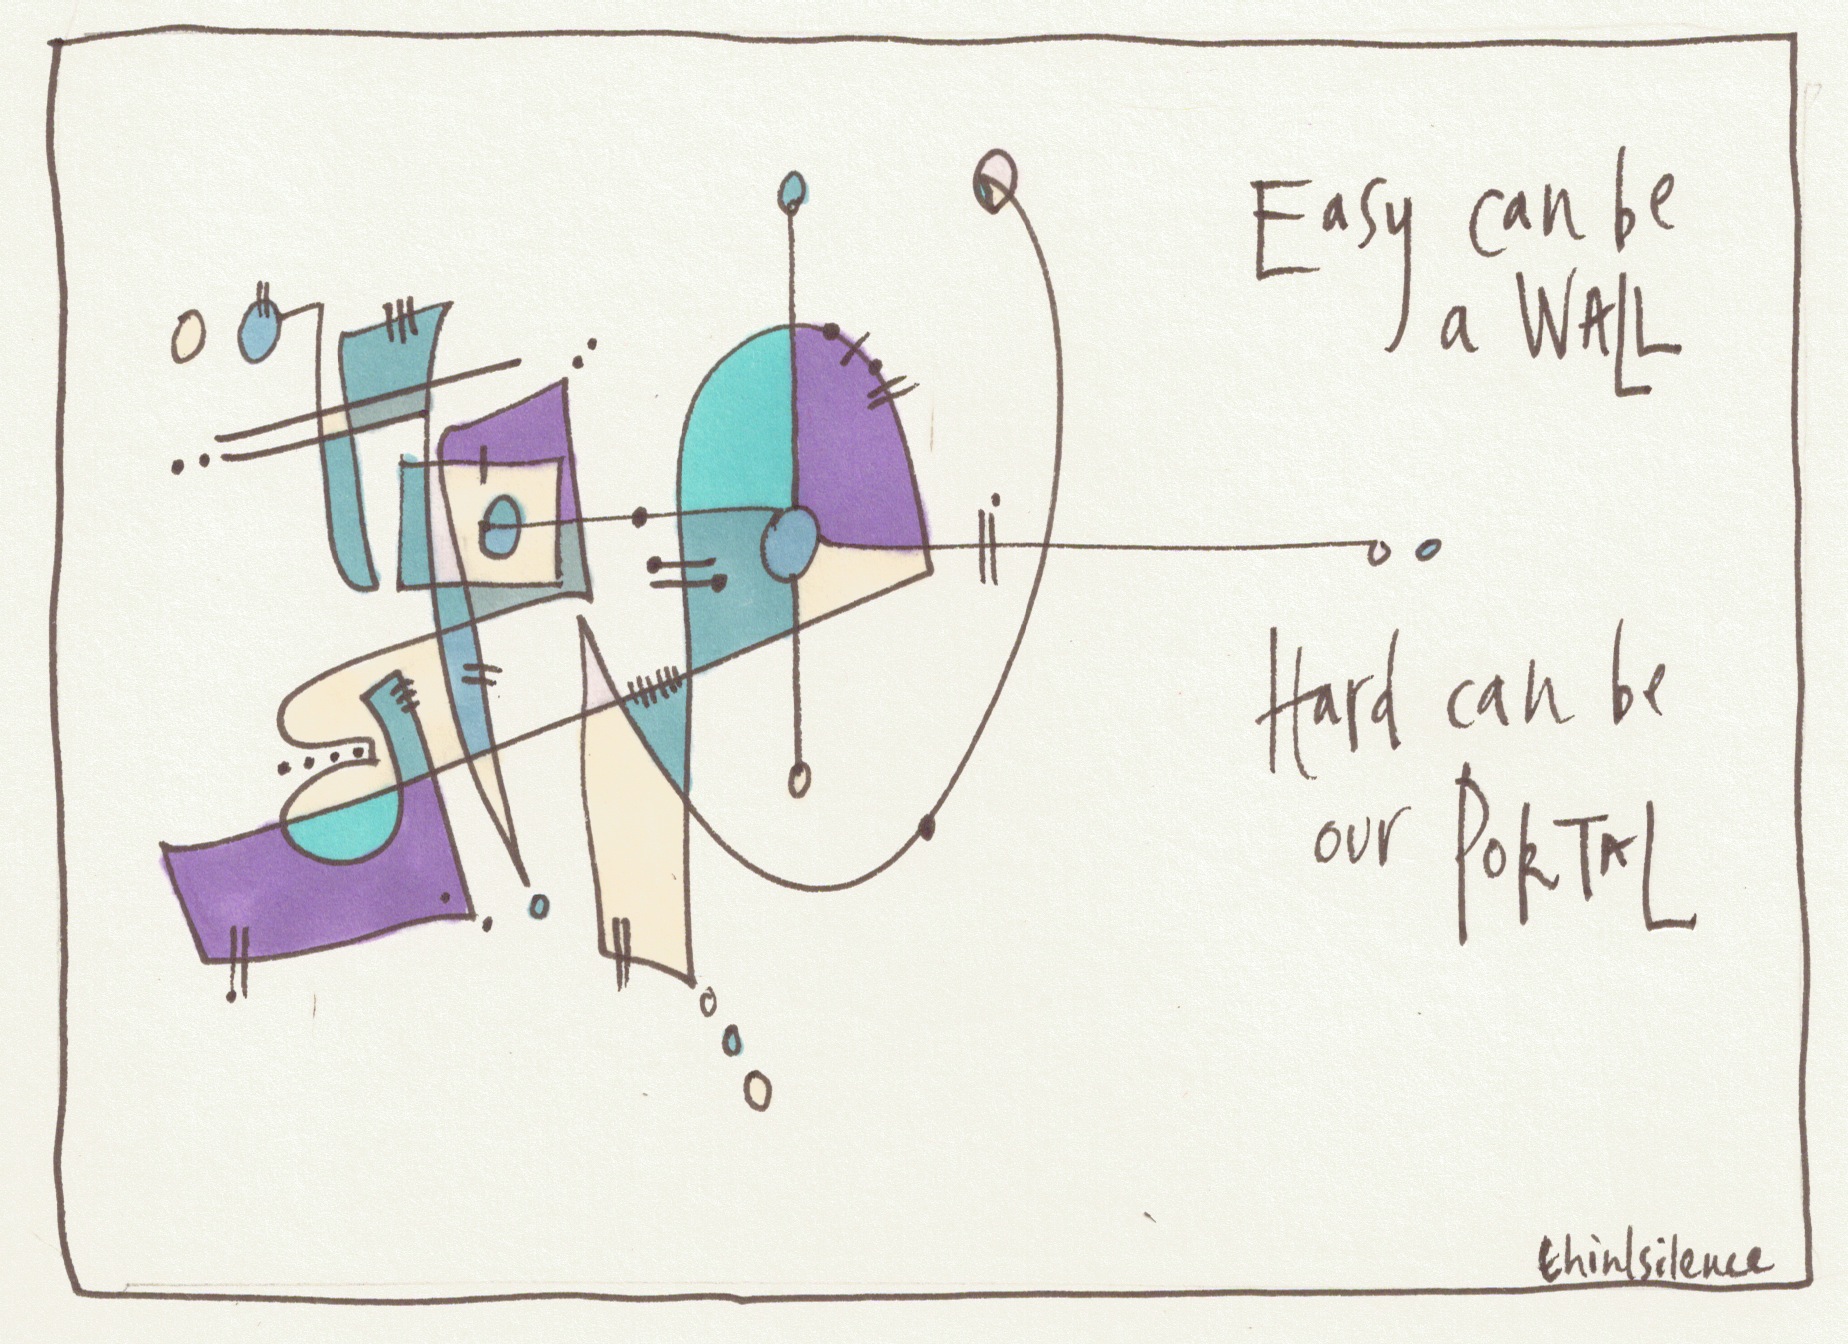 Easy can be
a WALL
Hard can be
our PORTAL
thinksilence